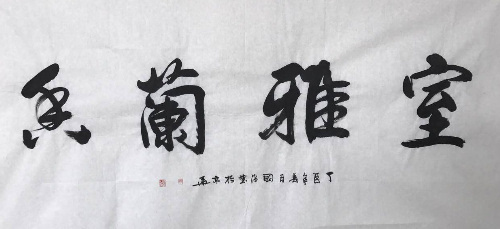 室雅蘭香
丁酉年春月國書於京